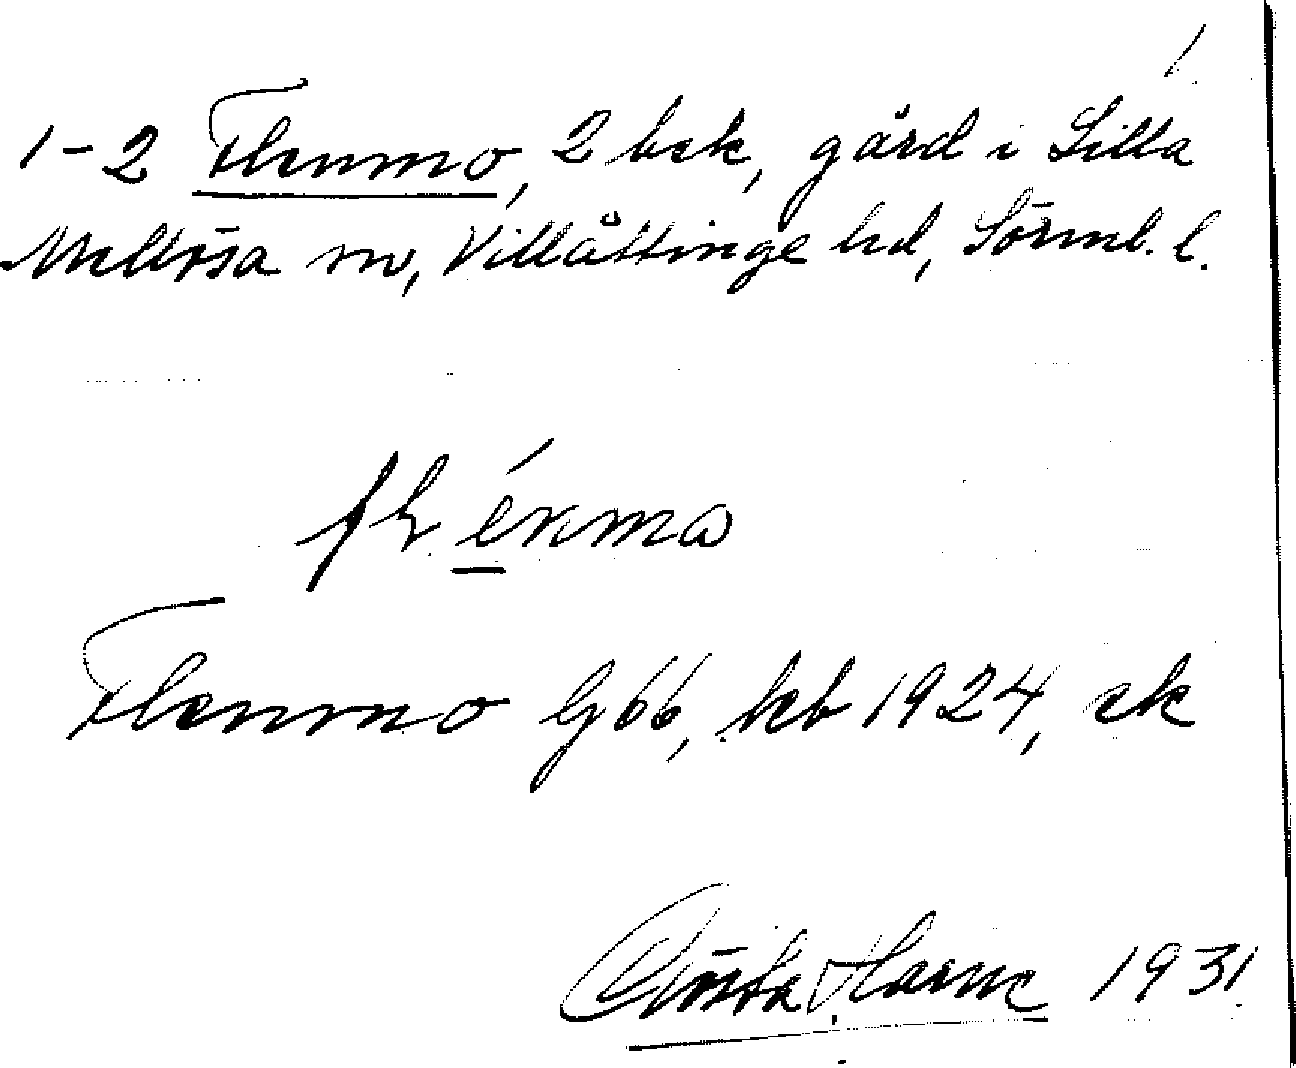 1
1-2 Flenmo, 2 bek, gård i Lilla
Mellösa sn, Villåttinge hd, Sörml. l.
énma
Flenmo G66, hb 1924, ek
Gösta 1931